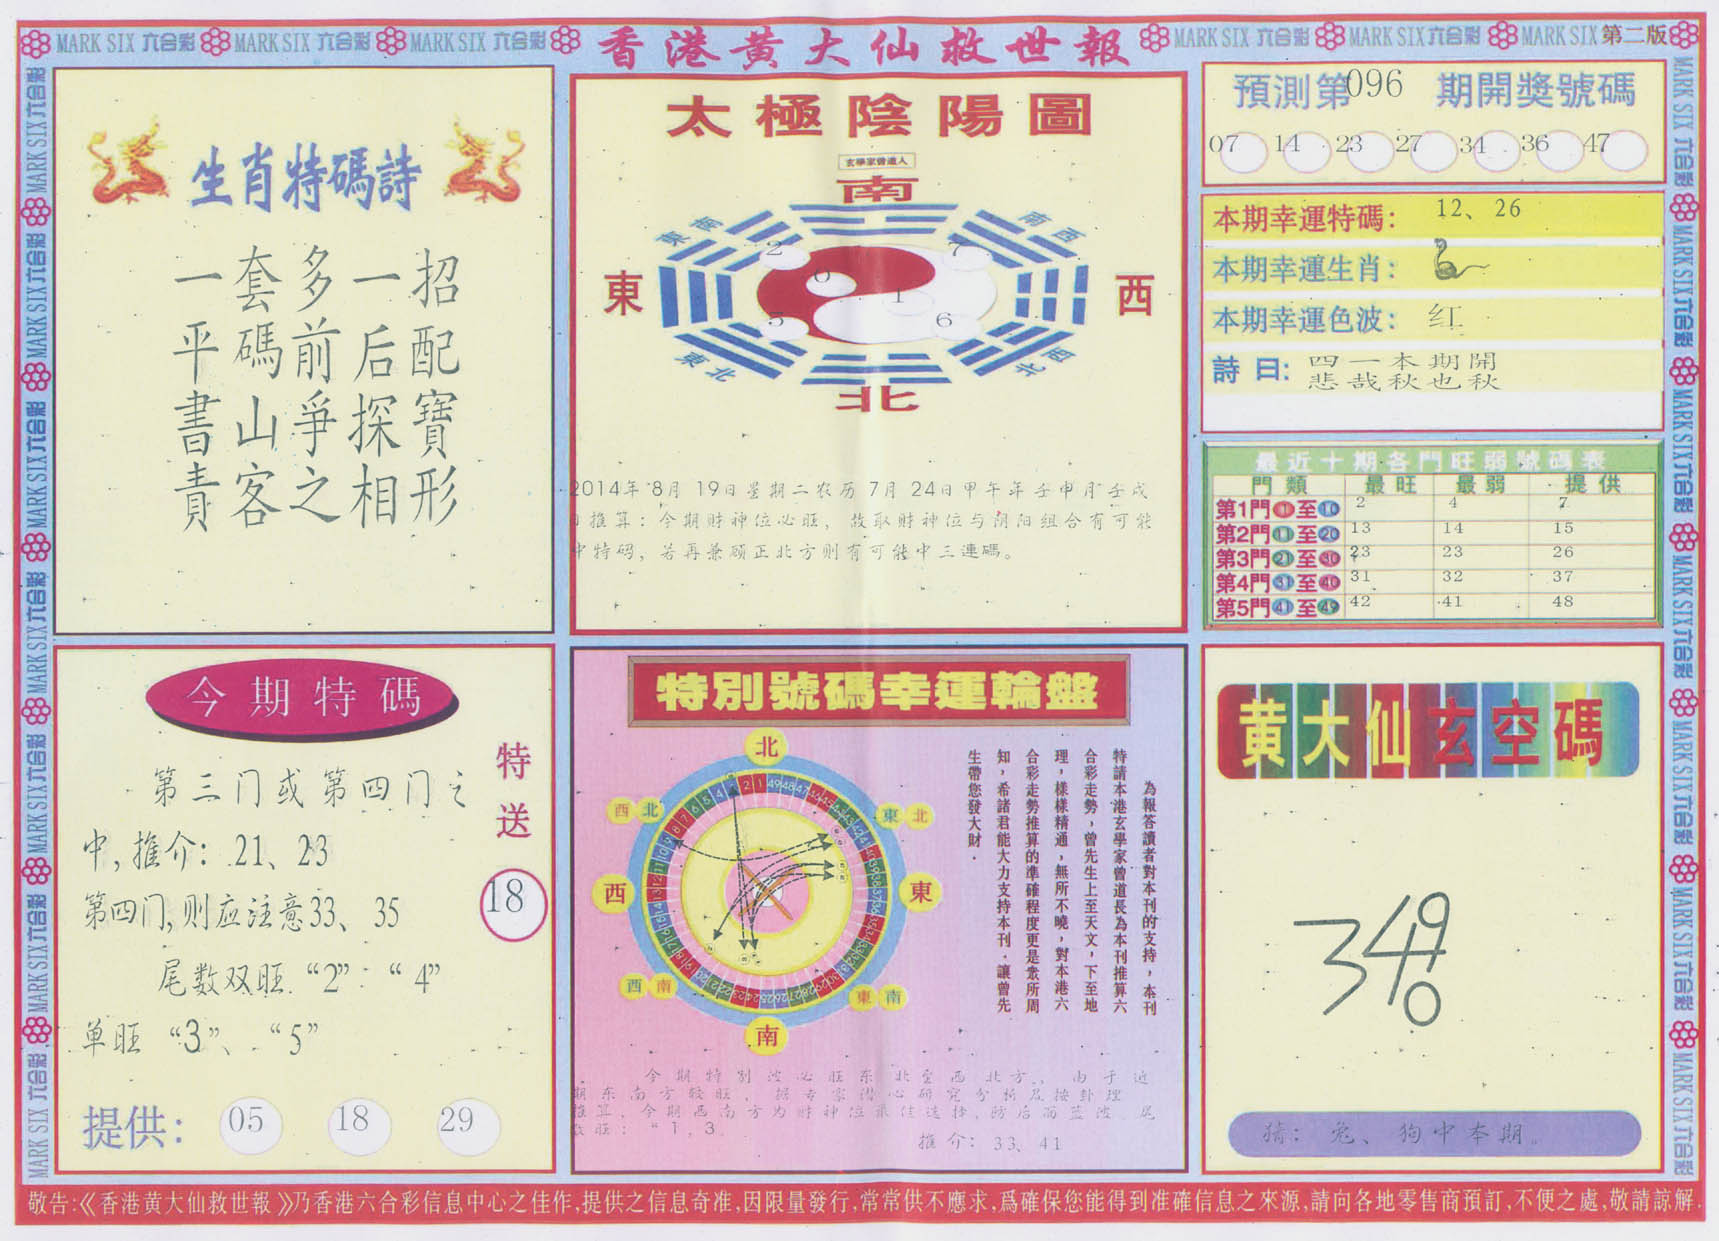 MARK SIX 六合彩 MARK SIX 六合彩 MARK SIX 六合彩
香港黃大仙救世報
MARK SIX 六合彩 MARK SIX 六合彩 MARK SIX 第二版
生肖特碼詩
招配寶形
一后探相
多前爭之
套碼山客
一平書責
太極陰陽圖
玄學家曾道人
南
東南
南西
東
西
東北
北西
北
2
7
0
1
5
6
2014年8月19日星期二农历7月24日甲午年壬申月壬戌
日推算：今期财神位必旺，故取财神位与阴阳组合有可能
中特码，若再兼顾正北方则有可能中三連碼。
預測第096期開獎號碼
07 14 23 27 34 36 47
本期幸運特碼：12、26
本期幸運生肖：
本期幸運色波：红
詩曰：四一本期開
悲哉秋也秋
最近十期各門旺弱號碼表
門類 最旺 最弱 提供
第1門1至10 2 4 7
第2門11至20 13 14 15
第3門21至30 23 23 26
第4門31至40 31 32 37
第5門41至49 42 41 48
今期特碼
第三门或第四门之
中,推介：21、23
第四门,则应注意33、35
尾数双旺“2”“4”
单旺“3”、“5”
特送
18
提供：05 18 29
特別號碼幸運輪盤
北
西北
東北
西
東
西南
東南
南
為報答讀者對本刊的支持，本刊
特請本港玄學家曾道長為本刊推算六
合彩走勢，曾先生上至天文，下至地
理，樣樣精通，無所不曉，對本港六
合彩走勢推算的準確程度更是衆所周
知，希諸君能大力支持本刊．讓曾先
生帶您發大財．
今期特别波必旺东北至西北方，由于近
期东南方较旺，据专家潜心研究分析及按卦理
推算，今期西南方为财神位最佳选择，防后面蓝波，尾
数旺：“1，3
推介：33、41
黄大仙玄空碼
3490
猜：兔、狗中本期。
敬告:《香港黄大仙救世報》乃香港六合彩信息中心之佳作,提供之信息奇准,因限量發行,常常供不應求,爲確保您能得到准確信息之來源,請向各地零售商預訂,不便之處,敬請諒解.